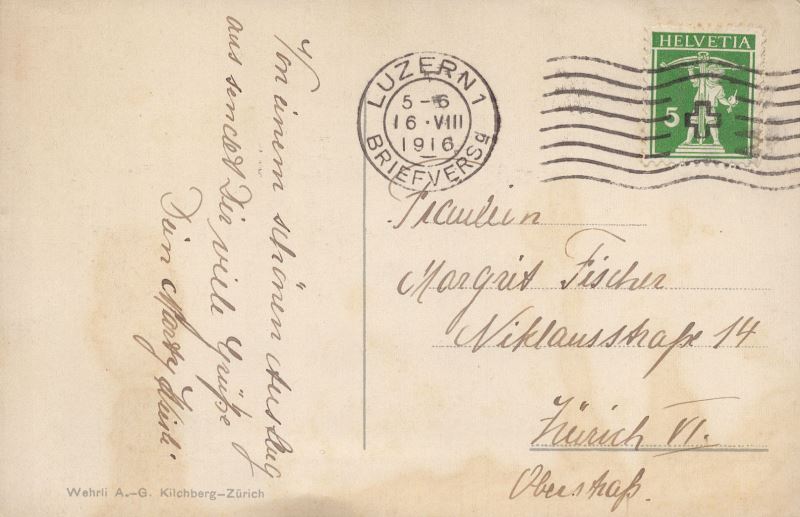 Von einem schönen Ausflug
aus sendet Dir viele Grüße
Dein
LUZERN 1
5-6
16·VIII
1916
BRIEFVERSd
HELVETIA
5
Fräulein
Margrit Fischer
Niklausstraße 14
Zürich VI.
Oberstraß.
Wehrli A.-G. Kilchberg-Zürich